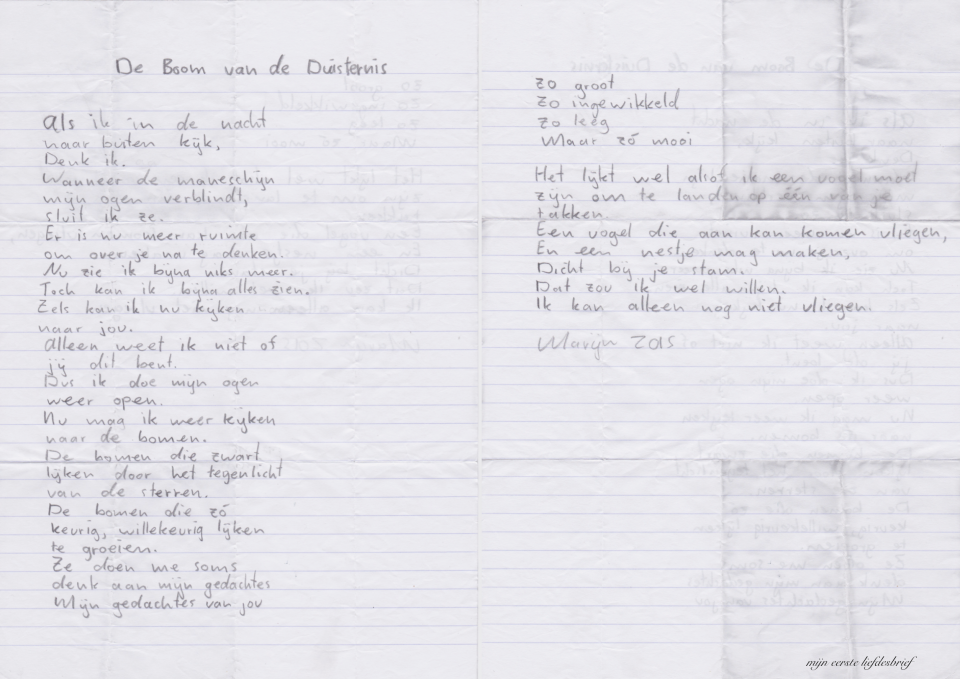 De Boom van de Duisternis
Als ik in de nacht
naar buiten kijk,
Denk ik.
Wanneer de maneschijn
mijn ogen verblindt,
sluit ik ze.
Er is nu meer ruimte
om over je na te denken.
Nu zie ik bijna niks meer.
Toch kan ik bijna alles zien.
Zels kan ik nu kijken
naar jou.
Alleen weet ik niet of
jij dit bent.
Dus ik doe mijn ogen
weer open.
Nu mag ik weer kijken
naar de bomen.
De bomen die zwart
lijken door het tegenlicht
van de sterren.
De bomen die zó
keurig, willekeurig lijken
te groeien.
Ze doen me soms
denk aan mijn gedachtes
Mijn gedachtes van jou
zo groot
zo ingewikkeld
zo leeg
Maar zó mooi
Het lijkt wel alsof ik een vogel moet
zijn om te landen op één van je
takken.
Een vogel die aan kan komen vliegen,
En een nestje mag maken,
Dicht bij je stam.
Dat zou ik wel willen.
Ik kan alleen nog niet vliegen.
Marijn Zas
mijn eerste liefdesbrief